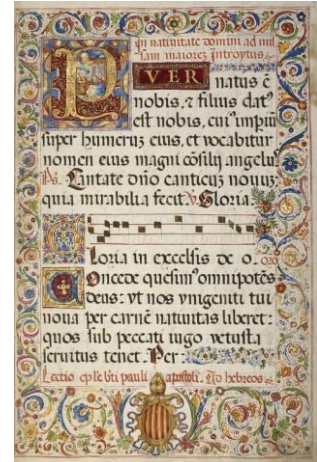 In nativitate domini ad mi
sam maiorem Introytus
PVER
natus e
nobis, & filius dat᷒
est nobis, cui᷒ impiũ
super humerum eius, et vocabitur
nomen eius magni cõsilij angelu᷒
Ps. Cantate dño canticum nouum:
quia mirabilia fecit. V. Gloria.
Gloria in excelsis de o.
Concede quesum᷒ omnipotẽs
deus: vt nos vnigeniti tui
noua per carnẽ natiuitas liberet:
quos sub peccati iugo vetusta
seruitus tenet. Per
Lectio eple bti pauli apostoli. Ad hebreos